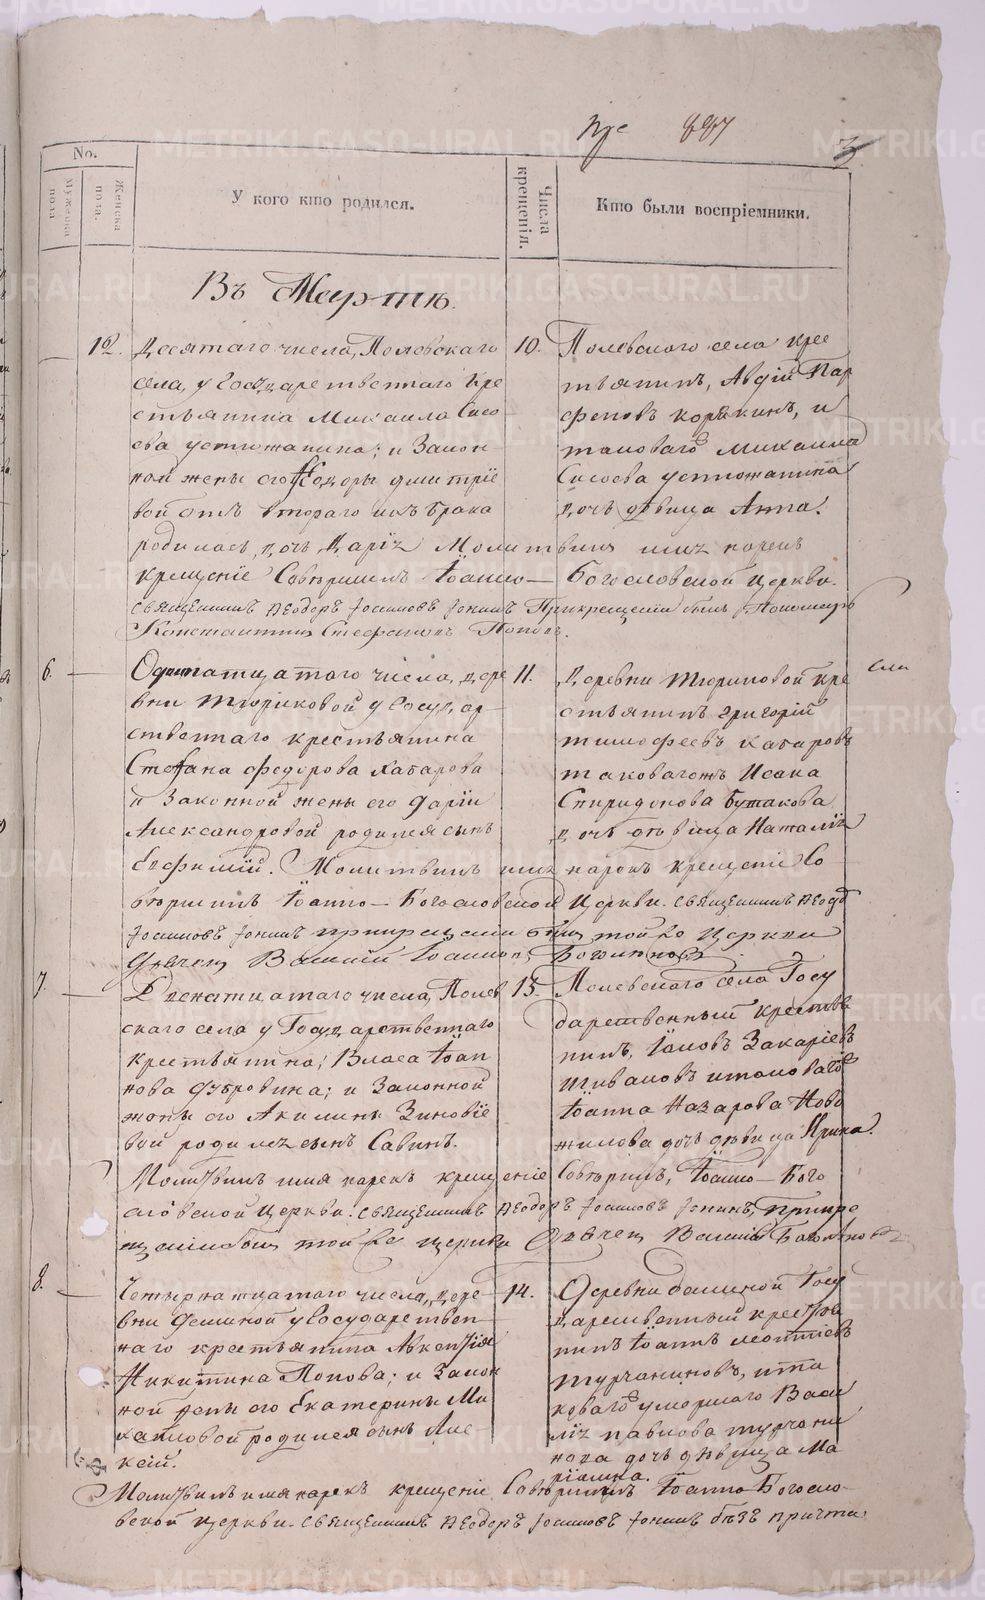 887
3
No.
Мужеска пола
Женска пола.
У кого кто родился.
Числа крещенія.
Кто были воспріемники.
Въ Мартѣ.
12. Десятаго числа, Полевскаго
села, у Государственнаго кре
стьянина Михаила Сысо
ева устюжанина; и Закон
ной жены его Ѳедоры дмитріе
вой отъ втораго ихъ брака
родилась, дочь Дарія
10. Полевского села кре
стьянинъ, Авдій Пар
феновъ корякинъ, и
таковаго Михаила
Сысоева устюжанина
дочь дѣвица Анна.
Молитвилъ имя нарекъ
крещеніе Совершилъ Іоанно— Богословской церкви.
священникъ Ѳеодоръ Іоакимовъ Іонинъ Прикрещеніи былъ Пономарь
Константинъ Стефановъ Поповъ.
6. Одиннатцатаго числа, дере
вни тюриковой у Государ
ственнаго крестьянина
Стефана федорова Хабарова
и Законной жены его дарьи
Александровой родился сынъ
Евфимій. Молитвилъ имя нарекъ крещеніе Со
11. Деревни тюриковой кре
стьянинъ григорій
тимофеевъ хабаровъ
таковагожъ Исака
Спиридонова бутакова
дочь дѣвица Наталія
вершилъ Іоанно— Богословской Церкви. священникъ Ѳеод
Іоакимовъ Іонинъ прикрещеніи былъ той же Церкви
Дьячекъ Василій Іоанновъ Боголюбовъ
7. Двенатцатаго числа, Полев
скаго села у Государственнаго
крестьянина; Власа Іоан
нова дубровина; и Законной
жены его Акилины Зиновіе
вой родился сынъ Савинъ.
13. Полевскаго села Госу
дарственный крестья
нинъ, Іаковъ Захаріевъ
Шиваковъ итаковаго
Іоанна Назарова Ново
жилова дочь дѣвица Ирина.
Молитвилъ имя нарекъ крещеніе Совершилъ, Іоанно— Бого
словской церкви. священникъ Ѳеодоръ Іоакимовъ Іонинъ, прикре
щеніи былъ той же церкви Дьячекъ Василій Боголюбовъ
8. Четырнатцатаго числа, дере
вни деминой у Государствен
наго крестьянина Авксентія
Никитина Попова; и Закон
ной жены его Екатерины Ми
хайловой родился сынъ Але-
ксій.
14. Деревни деминой Госу
дарственный крестья
нинъ Іоаннъ леонтіевъ
турчаниновъ, ита
коваго умершаго Васи
лія павлова турчани
нова дочь дѣвица Ма
ріанна.
Молитвилъ имя нарекъ крещеніе Совершилъ Іоанно Богосло-
вской церкви. священникъ Ѳеодоръ Іоакимовъ Іонинъ безъ причта
METRIKI.GASO-URAL.RU